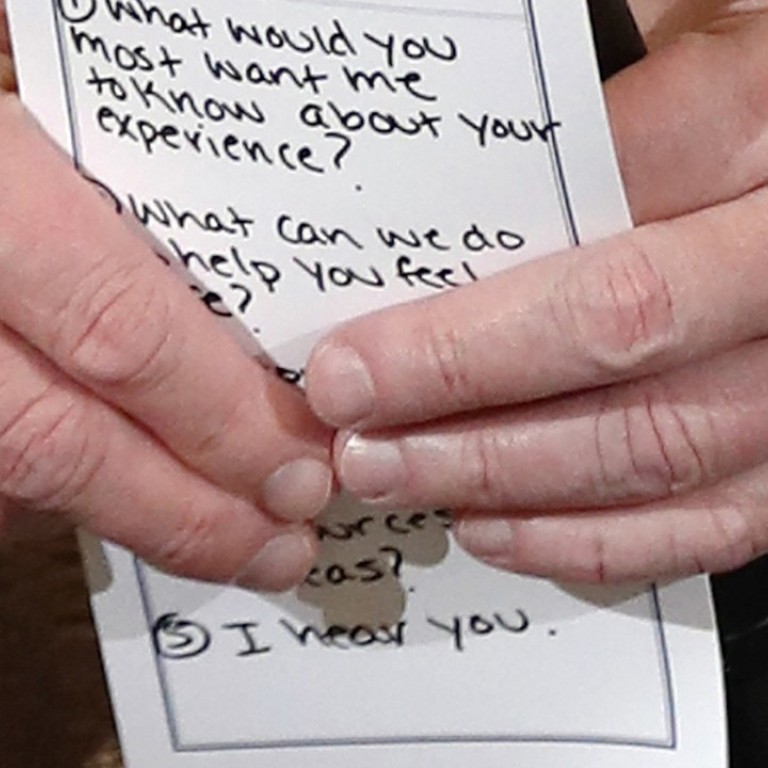 ① What would you
most want me
to know about your
experience?
What can we do
help you feel
?
⑤ I hear you.